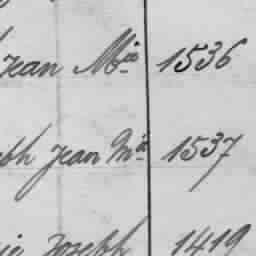 Jean Mie 1536
eph Jean Mie 1537
ie Joseph 1419